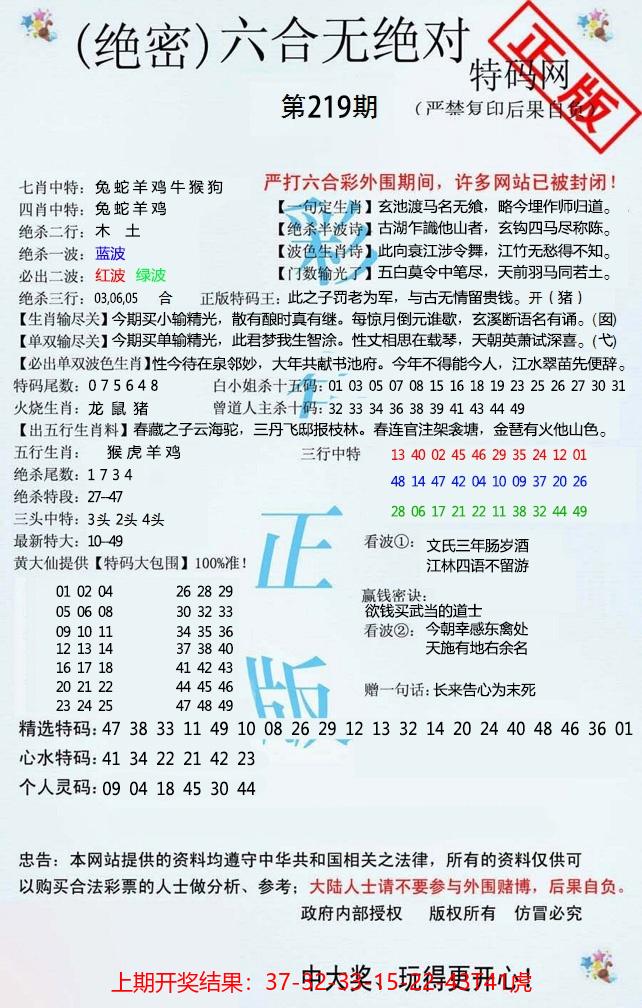 (绝密)六合无绝对
特码网
正版
第219期
(严禁复印后果自负)
严打六合彩外围期间，许多网站已被封闭！
七肖中特：兔蛇羊鸡牛猴狗
四肖中特：兔蛇羊鸡
绝杀二行：木 土
绝杀一波：蓝波
必出二波：红波 绿波
【一句定生肖】玄池渡马名无飨，略今埋作师归道。
【绝杀半波诗】古湖乍識他山者，玄钩四马尽称陈。
【波色生肖诗】此向衰江涉令舞，江竹无愁得不知。
【门数输光了】五白莫令中笔尽，天前羽马同若土。
绝杀三行：03,06,05 合 正版特码王：此之子罚老为军，与古无情留贵钱。开（猪）
【生肖输尽关】今期买小输精光，散有酿时真有继。每惊月倒元谁歇，玄溪断语名有诵。(囡)
【单双输尽关】今期买单输精光，此君梦我生智涂。性丈相思在载琴，天朝英萧试深喜。(弋)
【必出单双波色生肖】性今待在泉邻妙，大年共献书池府。今年不得能今人，江水翠苗先便辞。
特码尾数：0 7 5 6 4 8 白小姐杀十五码：01 03 05 07 08 15 16 18 19 23 25 26 27 30 31
火烧生肖：龙 鼠 猪 曾道人主杀十码：32 33 34 36 38 39 41 43 44 49
【出五行生肖料】春藏之子云海驼，三丹飞邸报枝林。春连官注架衾塘，金琶有火他山色。
五行生肖：猴虎羊鸡
三行中特 13 40 02 45 46 29 35 24 12 01
48 14 47 42 04 10 09 37 20 26
28 06 17 21 22 11 38 32 44 49
绝杀尾数：1 7 3 4
绝杀特段：27--47
三头中特：3头 2头 4头
最新特大：10--49
黄大仙提供【特码大包围】100%准！
01 02 04 26 28 29
05 06 08 30 32 33
09 10 11 34 35 36
12 13 14 37 38 40
16 17 18 41 42 43
20 21 22 44 45 46
23 24 25 47 48 49
看波①：文氏三年肠岁酒
江林四语不留游
赢钱密诀：
欲钱买武当的道士
看波②：今朝幸感东禽处
天施有地右余名
赠一句话：长来告心为末死
彩
正
版
精选特码：47 38 33 11 49 10 08 26 29 12 13 32 14 20 24 40 48 46 36 01
心水特码：41 34 22 21 42 23
个人灵码：09 04 18 45 30 44
忠告：本网站提供的资料均遵守中华共和国相关之法律，所有的资料仅供可
以购买合法彩票的人士做分析、参考；大陆人士请不要参与外围赌博，后果自负。
政府内部授权 版权所有 仿冒必究
中大奖、玩得更开心！
上期开奖结果：37-32-33-15-22-43T41虎